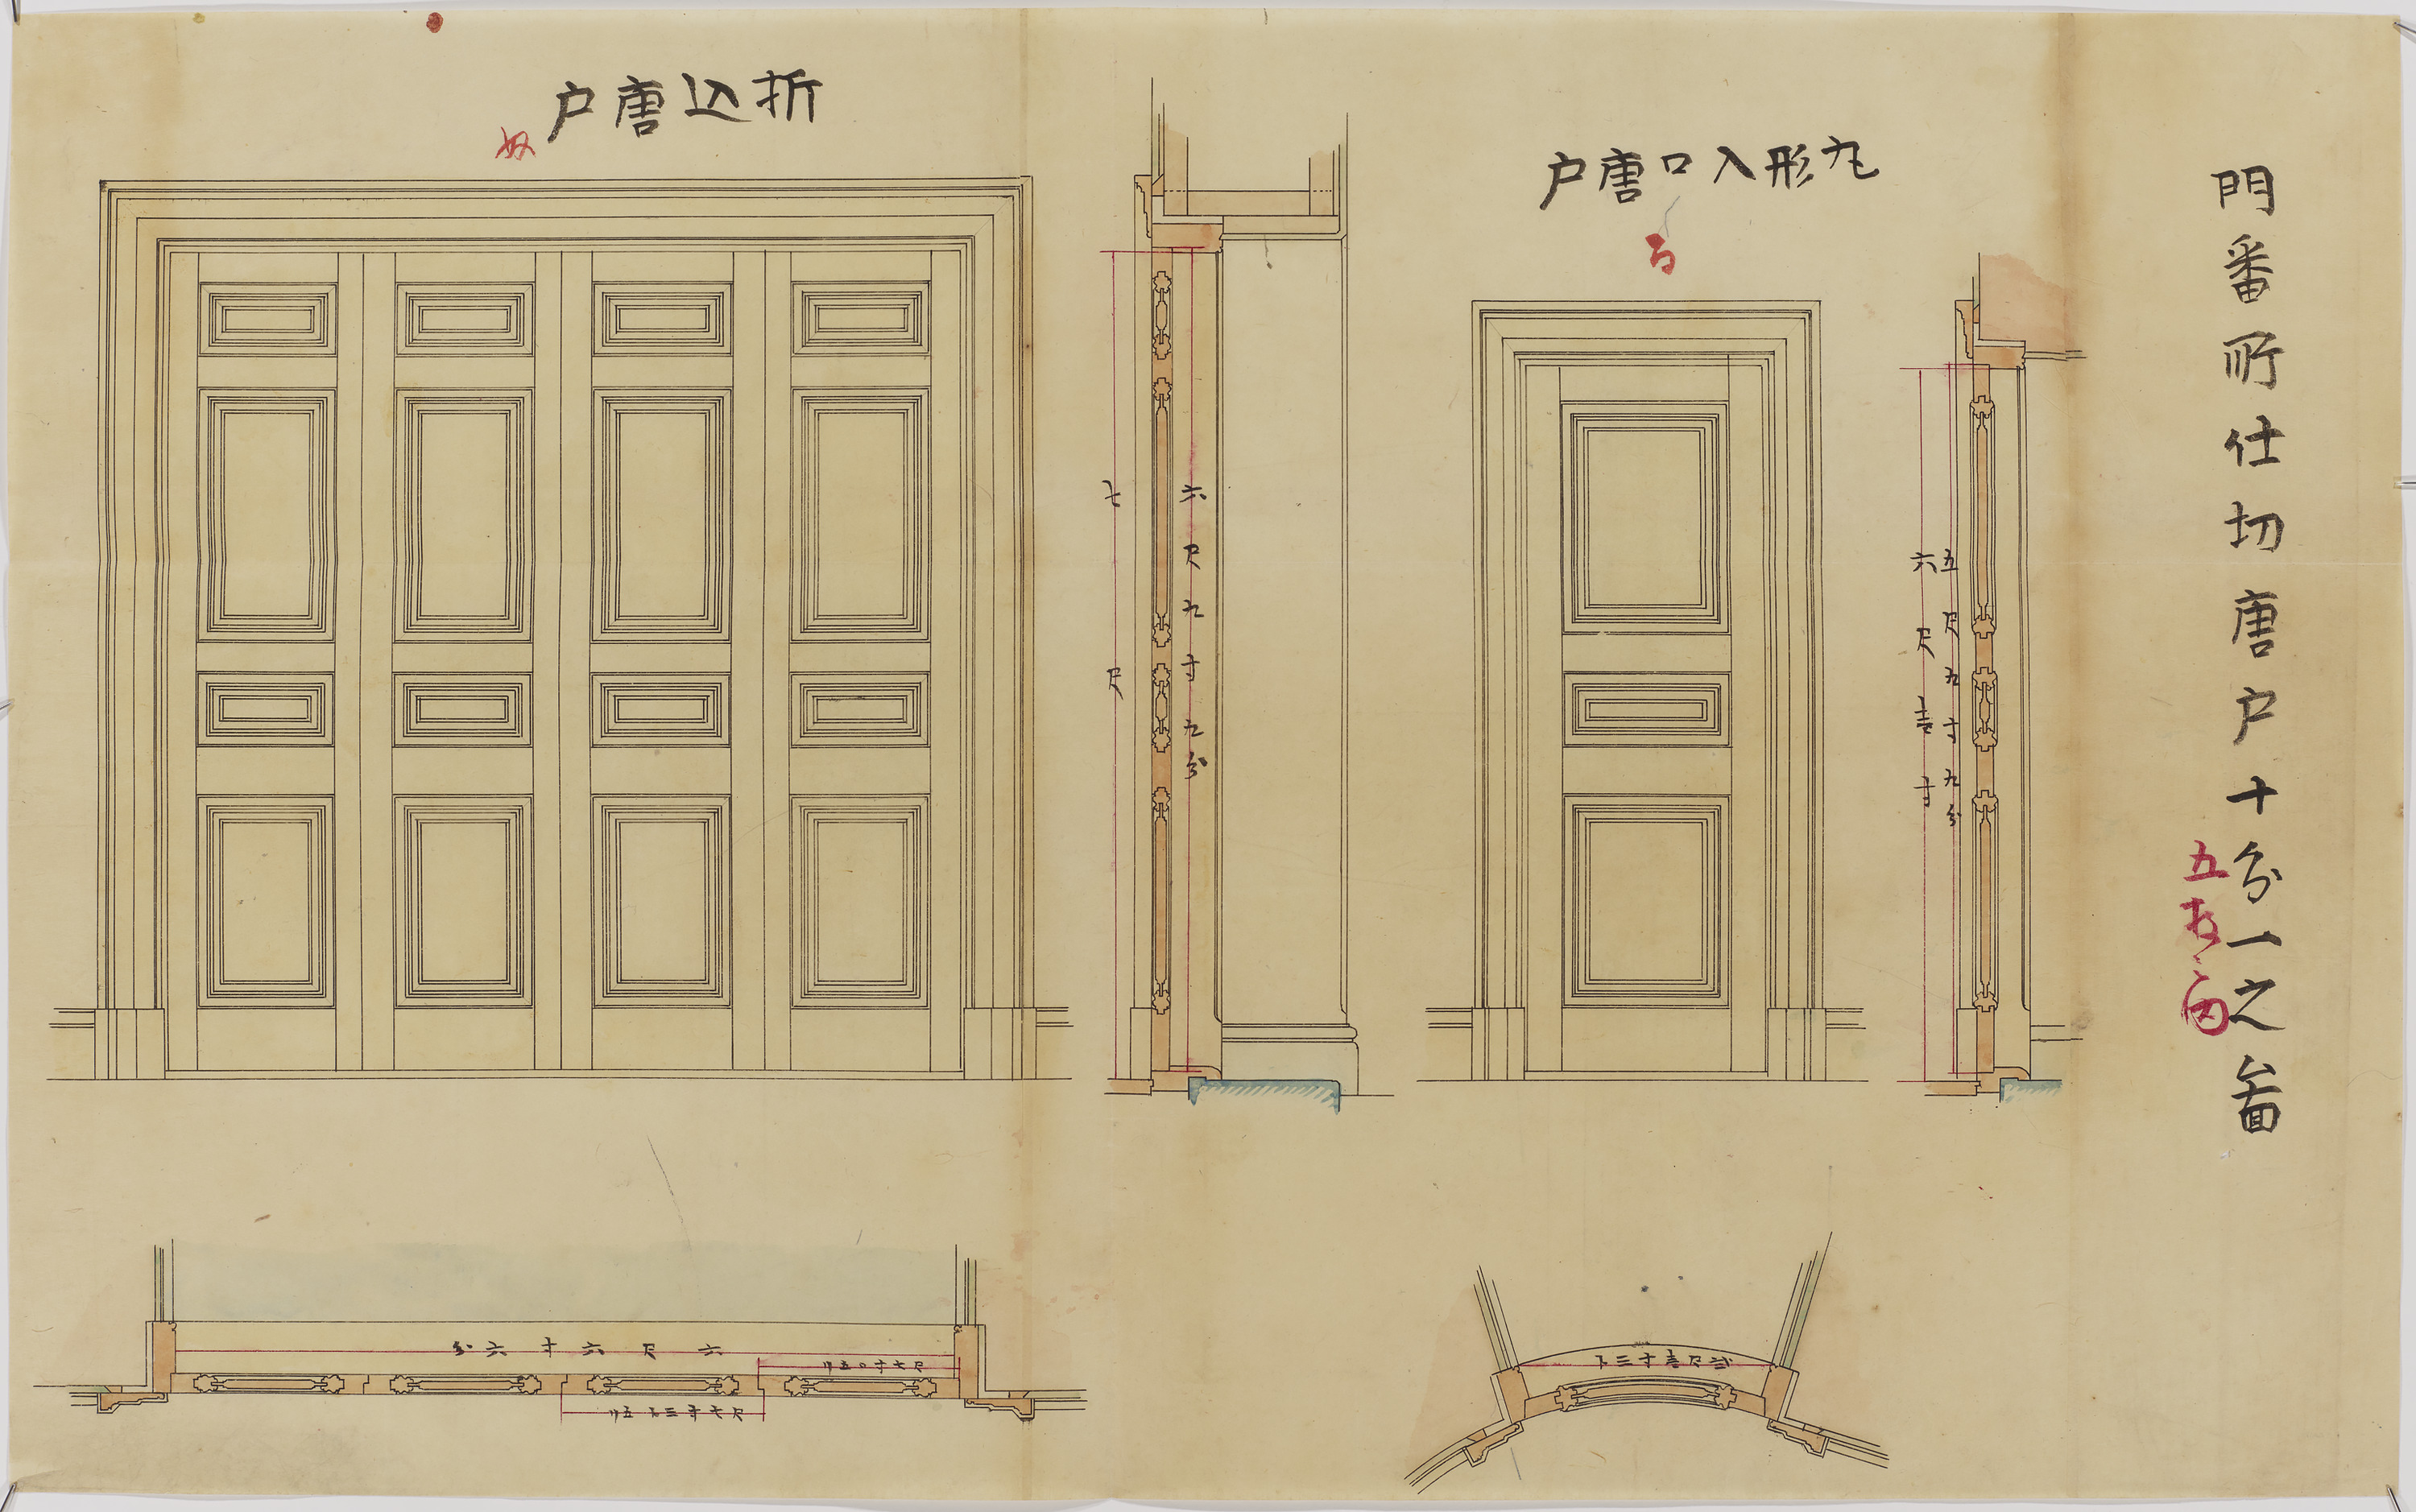 門番所仕切唐戸十分一之啚
五拾ノ内
丸形入口唐戸
る
折込唐戸
奴
五尺九寸九分
六尺壹寸
六尺九寸九分
七尺
六尺六寸六分
尺七寸〇五リ
尺七寸三卜五リ
弐尺壹寸三卜